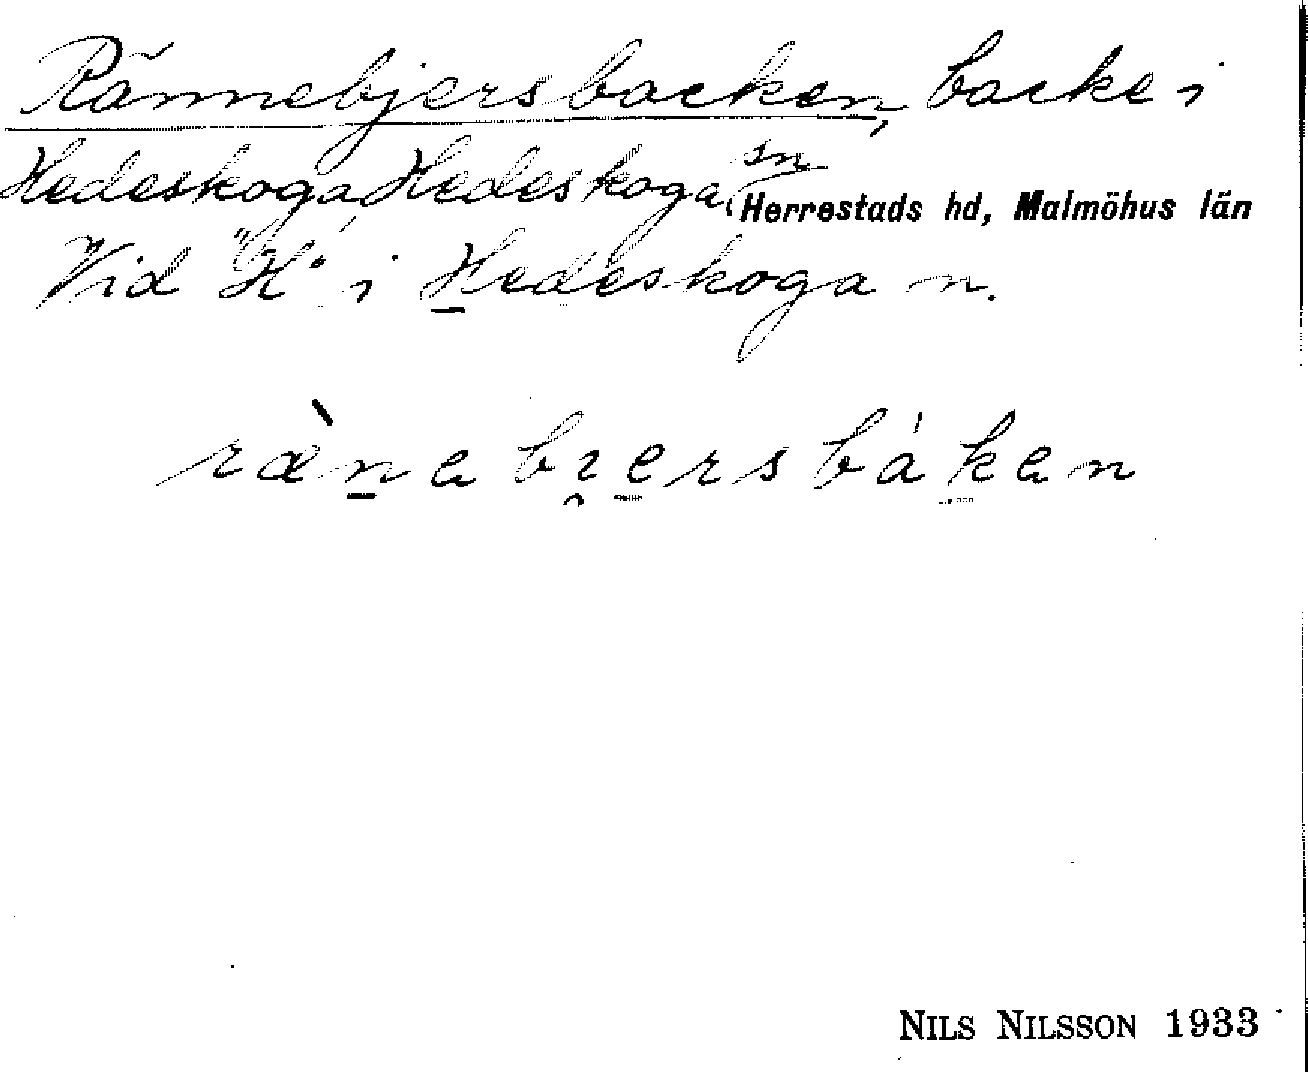 Rännebjersbacken, backe i
Hedeskoga, Hedeskoga sn
Herrestads hd, Malmöhus län
Vid "H" i Hedeskoga n.
ræ̀nebjersbáken
NILS NILSSON 1933